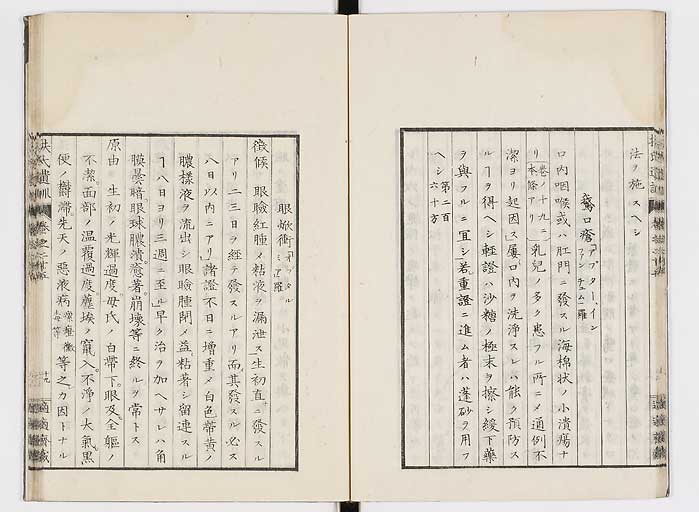 法ヲ施スヘシ
鵞口瘡
口内咽喉或ハ肛門ニ發スル海棉状ノ小潰瘍ナ
リ 卷十九ニ本條アリ 乳兒ノ多ク患フル所ニメ通例不
潔ヨリ起因ス屢口内ヲ洗浄スレハ能ク預防ス
ルヿヲ得ヘシ輕證ハ沙糖ノ極末ヲ擦シ緩下藥
ヲ與フルニ宜シ若重證ニ進ム者ハ蓬砂ヲ用フ
ヘシ 第二百六十方
眼焮衝
徴候 眼瞼紅腫メ粘液ヲ漏泄ス生初直ニ發スル
アリ二三日ヲ經テ發スルアリ而其發スル必ス
八日以内ニアリ諸證不日ニ增重メ白色帶黄ノ
膿樣液ヲ流出シ眼瞼腫閉メ益粘著シ留連スル
ヿ八日ヨリ三週ニ至ル早ク治ヲ加ヘサレハ角
膜曇暗眼球膿潰瘉著崩壞等ニ終ルヲ常トス
原由 生初ノ光輝過度母氏ノ白帶下眼及全軀ノ
不潔面部ノ温覆過度塵埃ノ竄入不淨ノ大氣黒
便ノ鬱滯先天ノ惡液病 等之カ因トナル